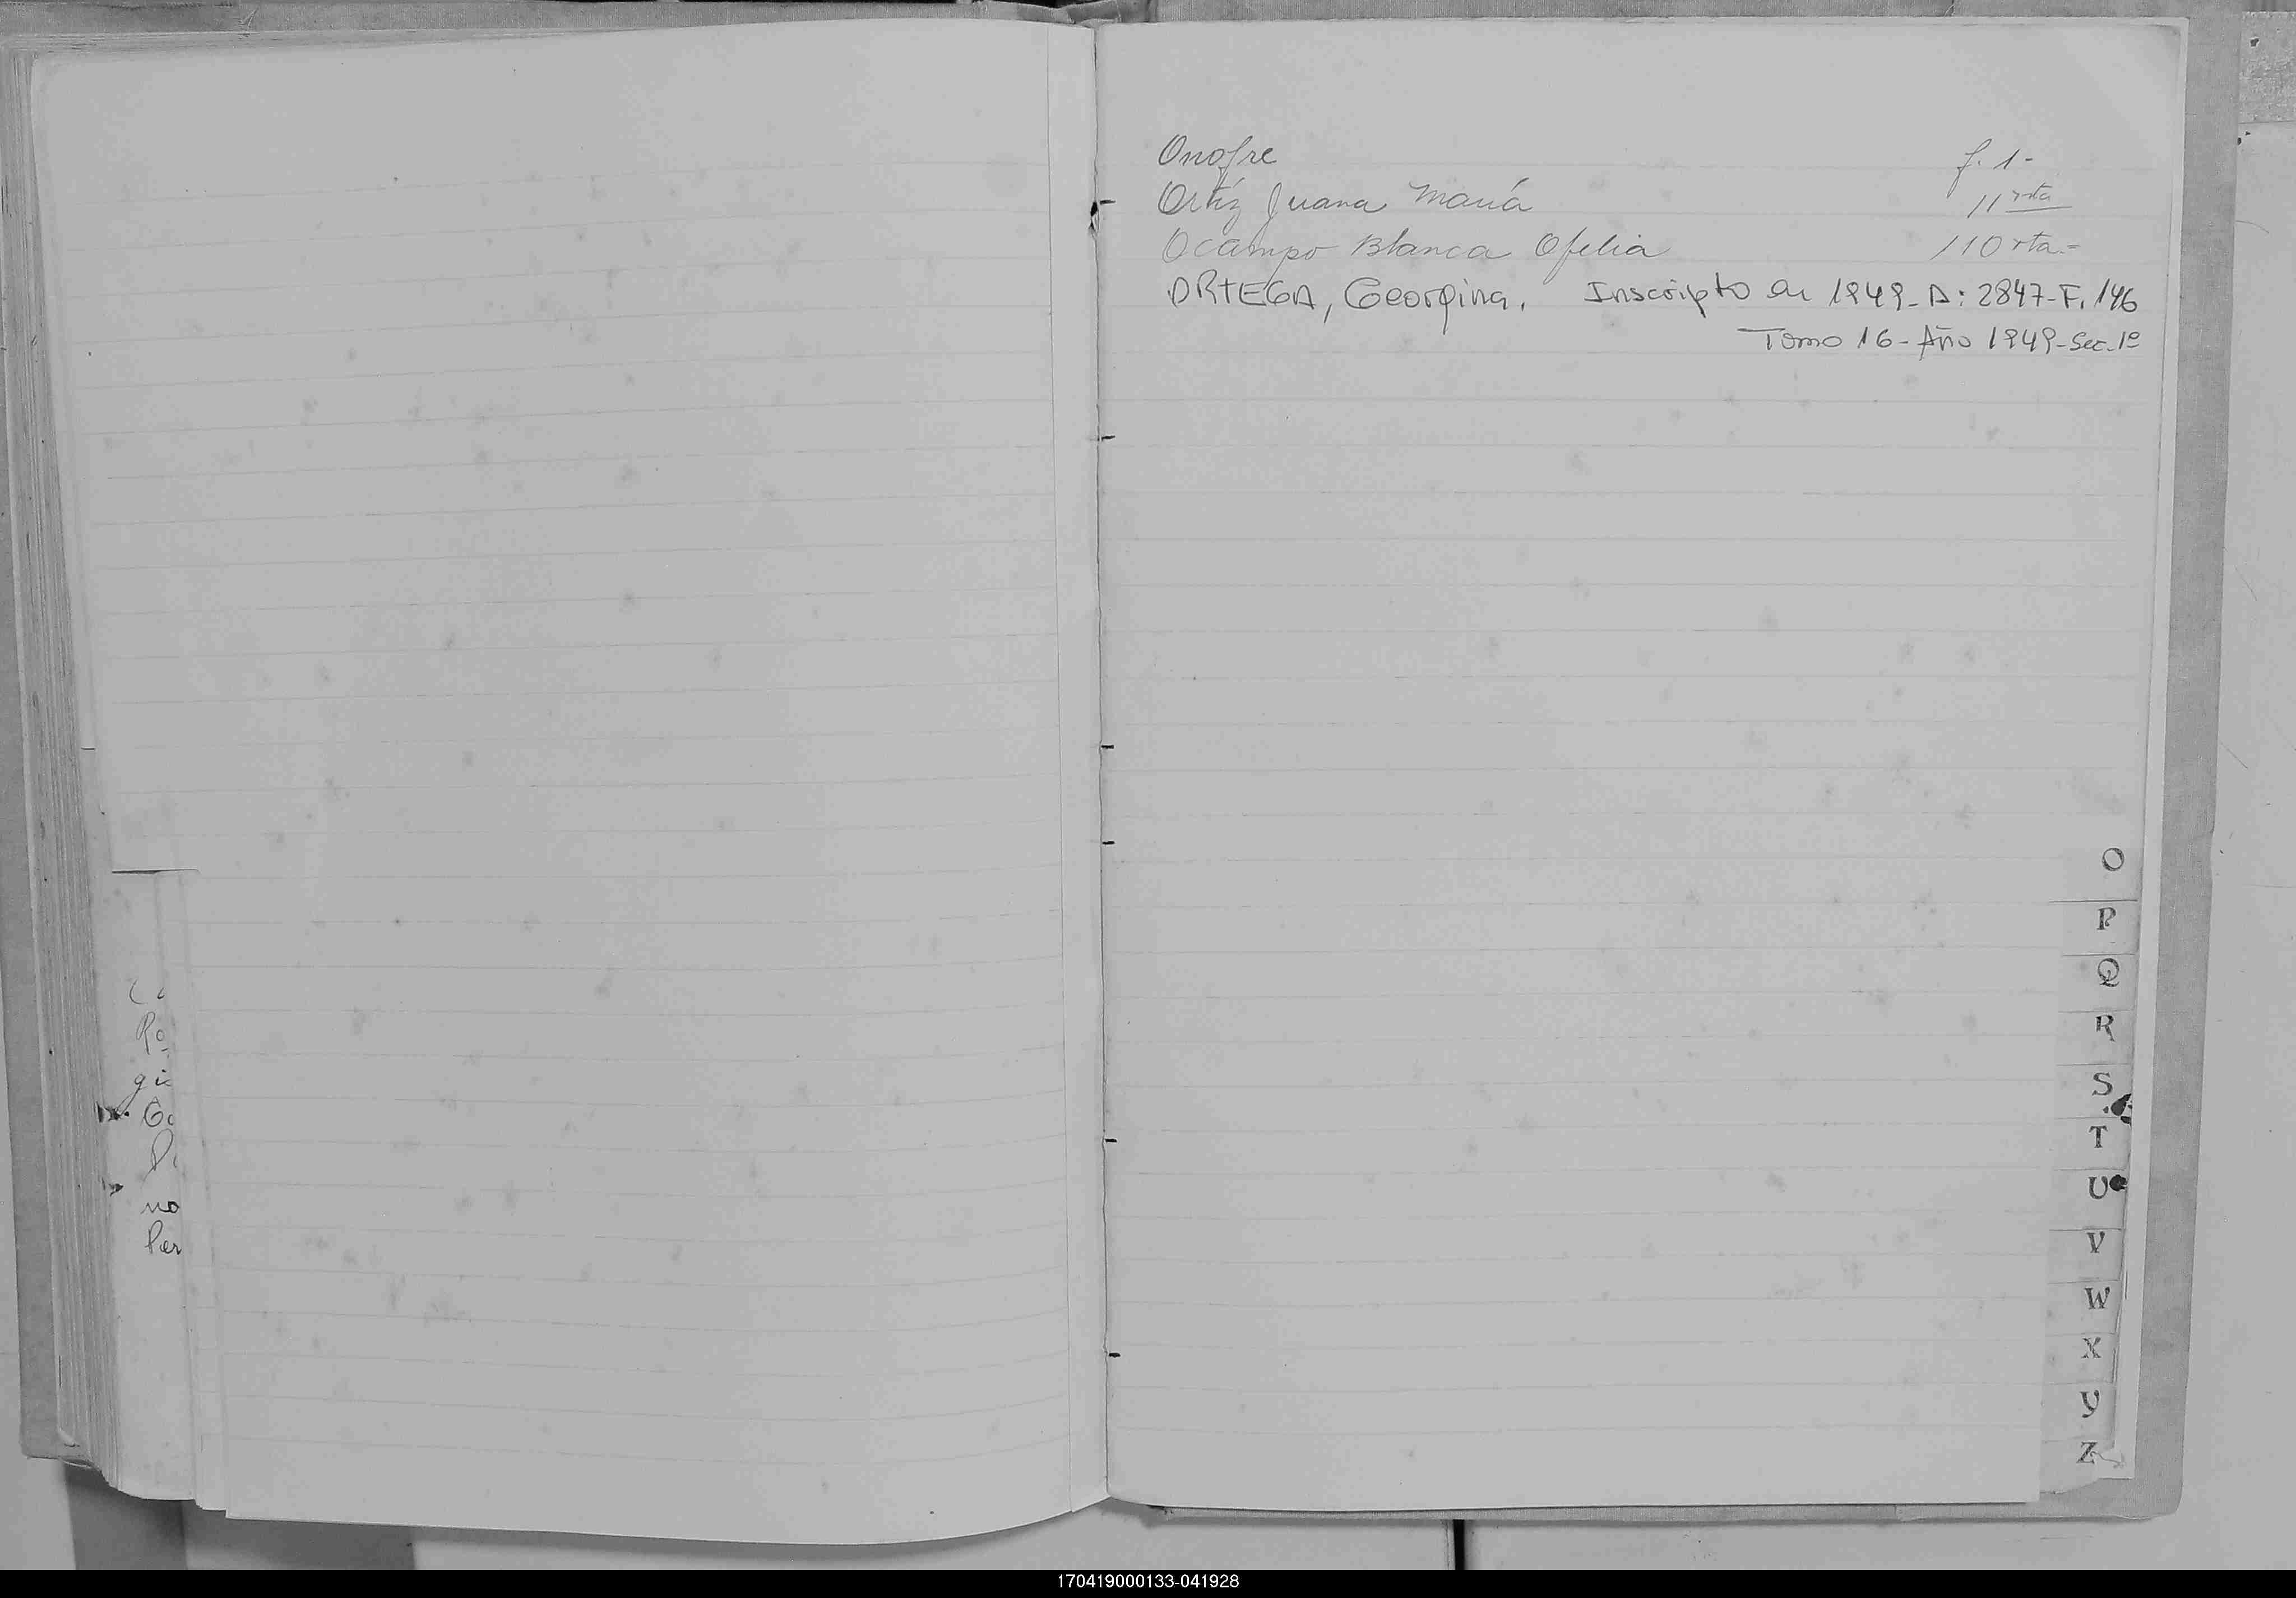 Onofre f. 1-
Ortíz Juana María 11 vta
Ocampo Blanca Ofelia 110 vta=
ORTEGA, Georgina. Inscripto en 1949-A: 2847-F. 146
Tomo 16-Año 1949-Sec. 1º
O
P
Q
R
S
T
U
V
W
X
Y
Z
gi
Go
no
Per
170419000133-041928